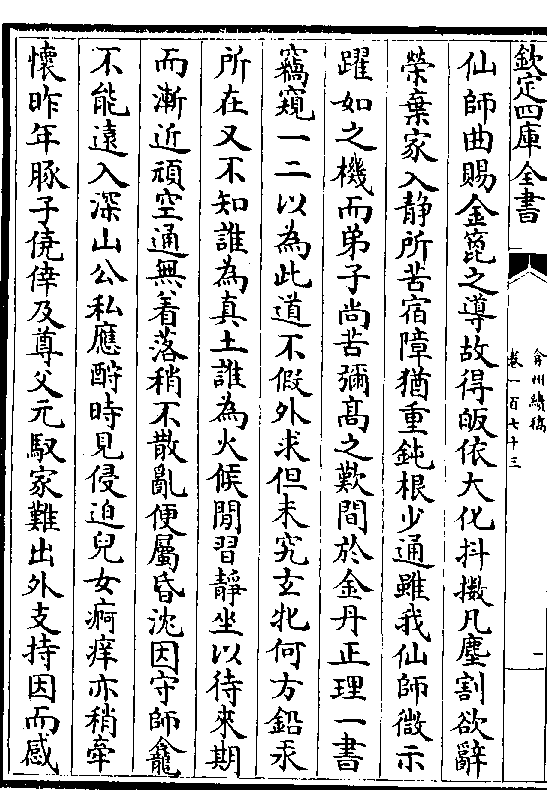 欽定四庫全書
弇州續稿
卷一百七十三
一
仙師曲賜金篦之導故得皈依大化抖擻凡塵割欲辭
榮棄家入靜所苦宿障猶重鈍根少通雖我仙師微示
躍如之機而弟子尚苦彌髙之歎間於金丹正理一書
竊窺一二以為此道不假外求但未究玄牝何方鉛汞
所在又不知誰為真土誰為火候閒習靜坐以待來期
而漸近頑空通無着落稍不散亂便屬昏沈因守師龕
不能遠入深山公私應酧時見侵迫兒女痾痒亦稍牽
懷昨年豚子僥倖及尊父元馭家難出外支持因而感